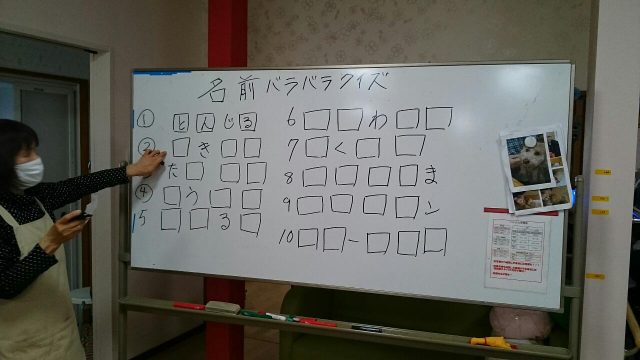 名前バラバラクイズ
① とんじる
② □き□□
た□□□
④ □う□□
5 □□る□
6 □□わ□□
7 □く□□
8 □□□□ま
9 □□□□ン
10 □□ー□□□